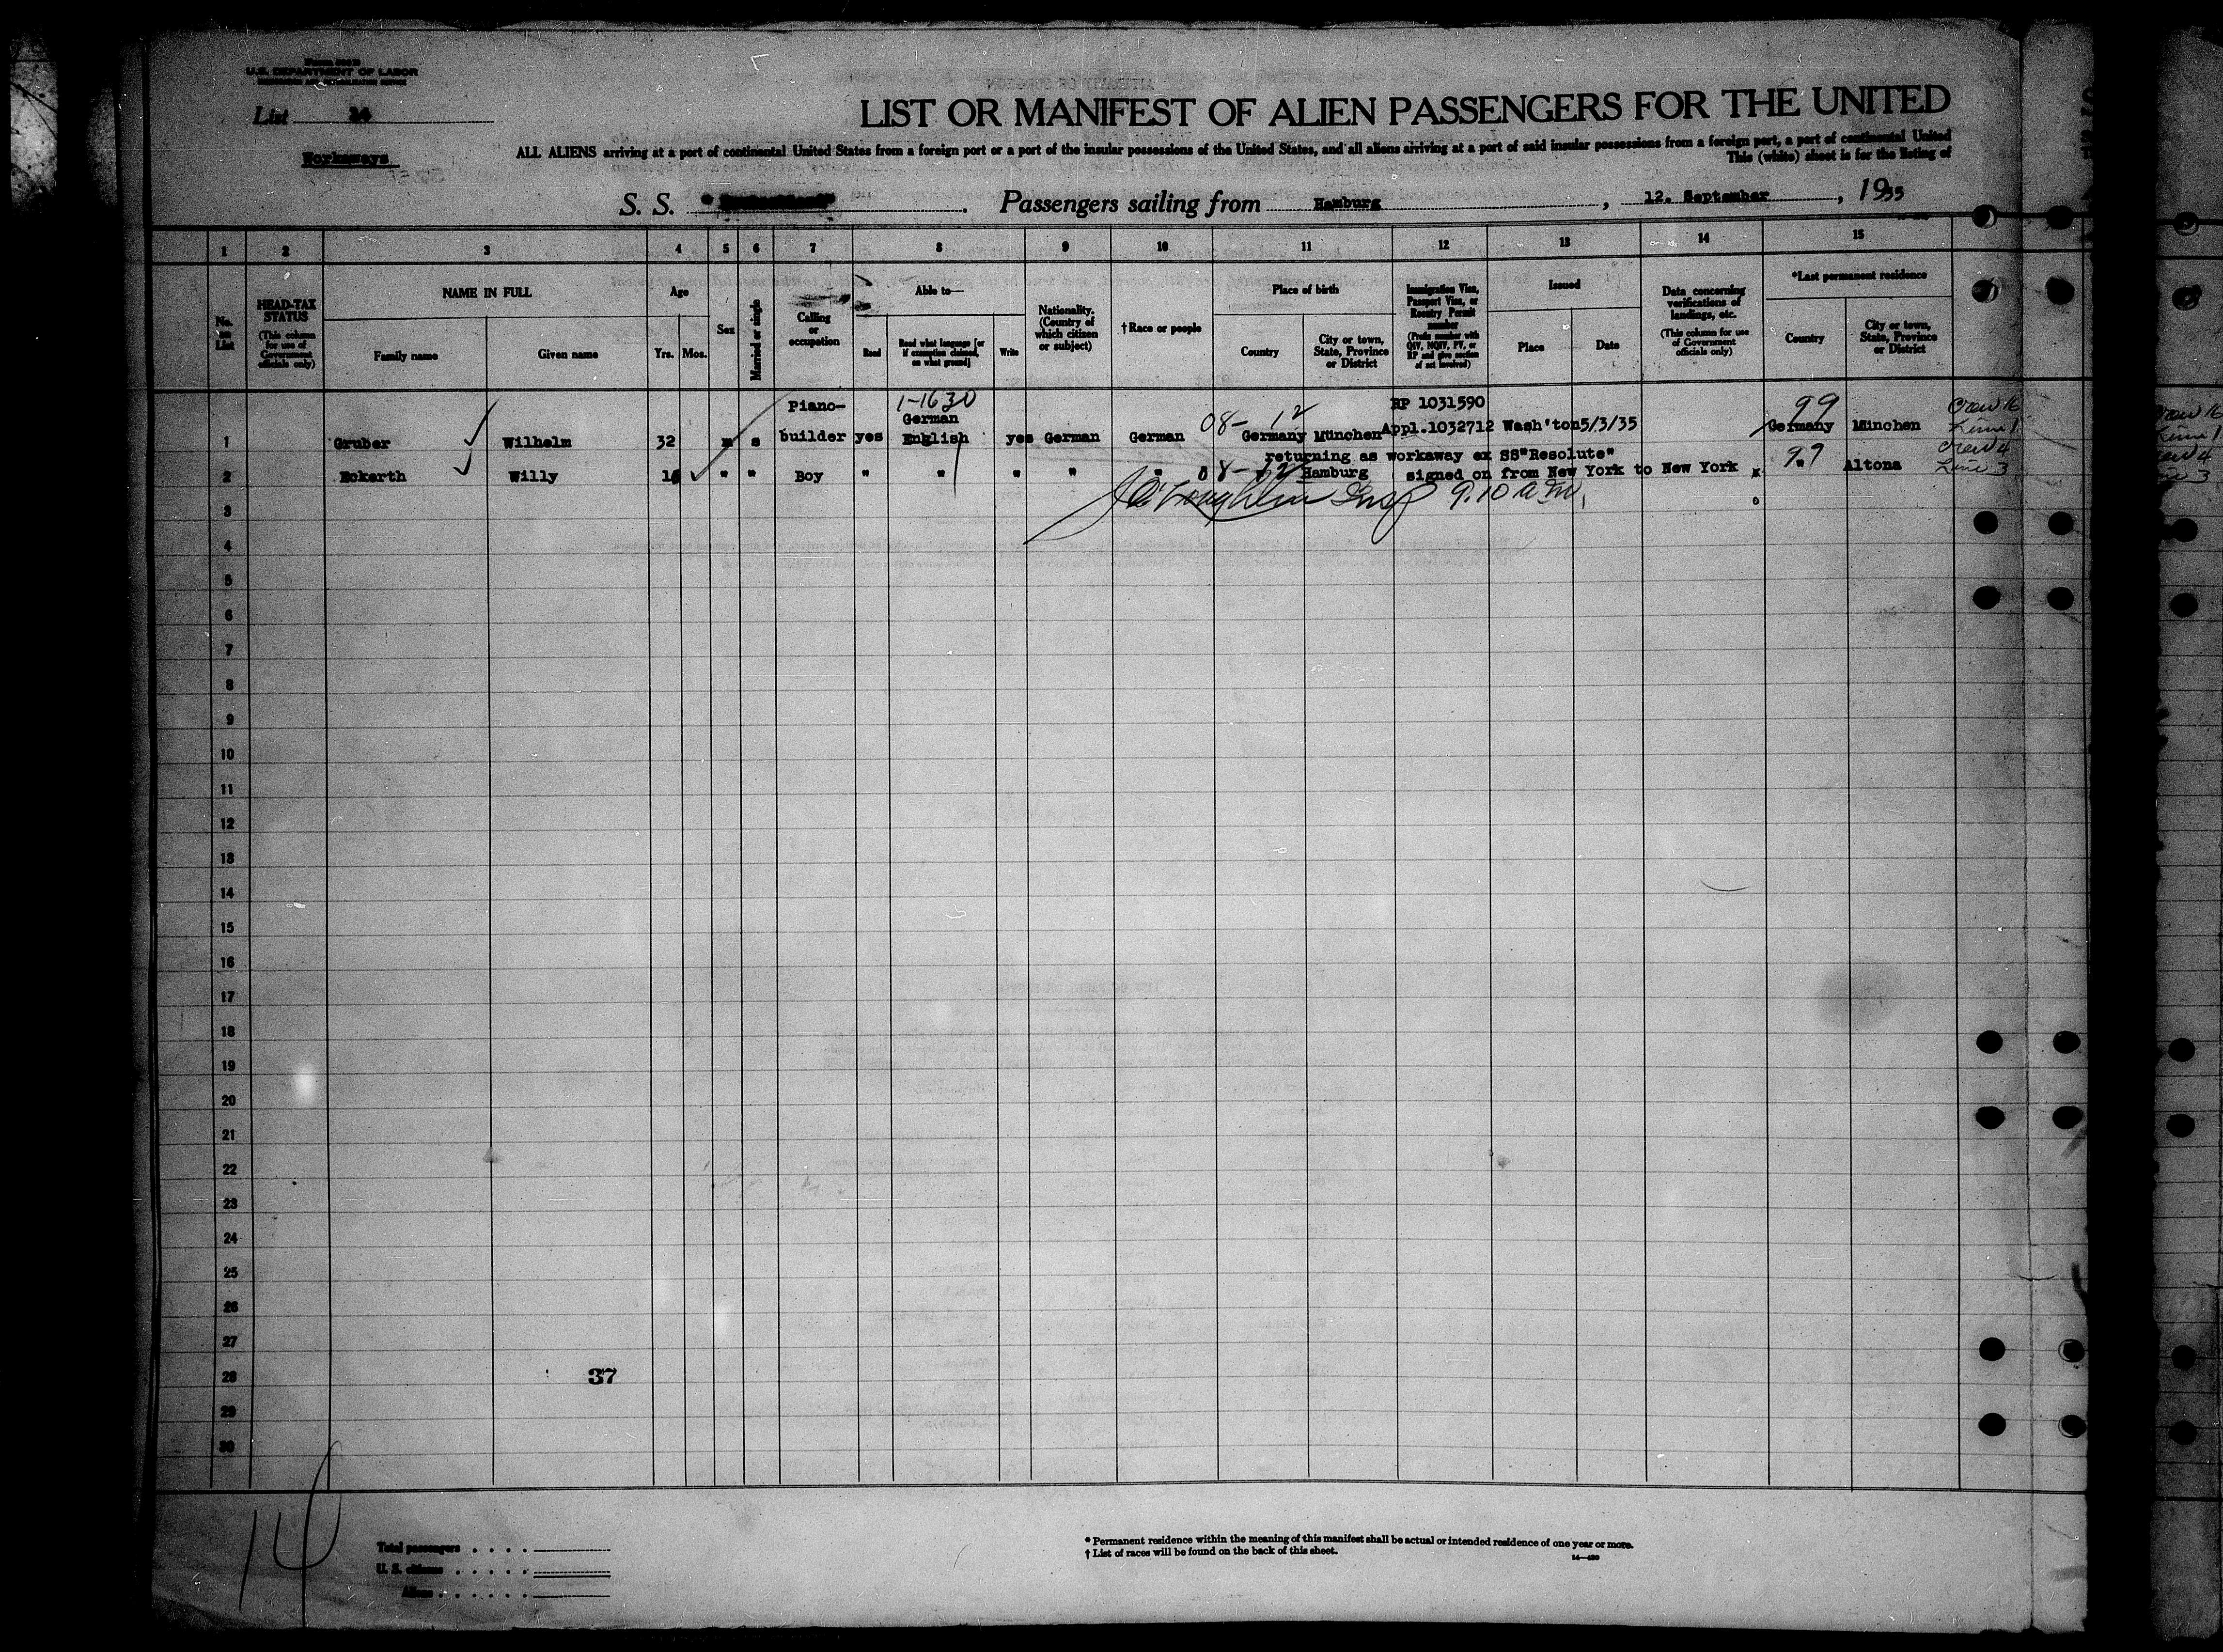 U.S. DEPARTMENT OF LABOR
List 14
LIST OR MANIFEST OF ALIEN PASSENGERS FOR THE UNITED
Workaways
ALL ALIENS arriving at a port of continental United States from a foreign port or a port of the insular possessions of the United States, and all aliens arriving at a port of said insular possessions from a foreign port, a port of continental United
This (white) sheet is for the listing of
S. S. Passengers sailing from Hamburg, 12. September, 1935
1 2 3 4 5 6 7 8 9 10 11 12 13 14 15
No. on List
HEAD-TAX STATUS
(This column for use of Government officials only)
NAME IN FULL
Family name
Given name
Age
Yrs. Mos.
Sex
Married or single
Calling or occupation
Able to—
Read
Read what language [or if exemption claimed, on what ground]
Write
Nationality. (Country of which citizen or subject)
†Race or people
Place of birth
Country
City or town, State, Province or District
Immigration Visa, Passport Visa, or Reentry Permit number
(Prefix number with QIV, NQIV, PV, or RP and give section of act involved)
Issued
Place
Date
Data concerning verifications of landings, etc.
(This column for use of Government officials only)
*Last permanent residence
Country
City or town, State, Province or District
Piano- 1-1630 RP 1031590 99
German 08- 12
1 Gruber Wilhelm 32 m s builder yes English yes German German Germany München Appl.1032712 Wash'ton 5/3/35 Germany München
returning as workaway ex SS"Resolute"
2 Eckerth Willy 16 " " Boy " " " " " 08-12 Hamburg signed on from New York to New York x 99 " Altona
3 9.10 a.m.
4
5
6
7
8
9
10
11
12
13
14
15
16
17
18
19
20
21
22
23
24
25
26
27
28 37
29
30
14
Total passengers
U. S. citizens
Aliens
* Permanent residence within the meaning of this manifest shall be actual or intended residence of one year or more.
† List of races will be found on the back of this sheet.
14—480